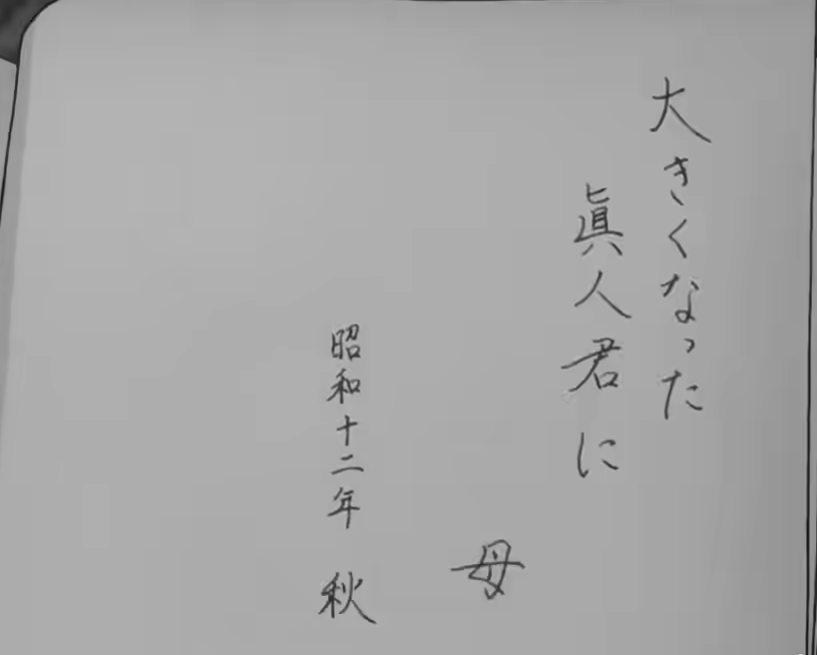 大きくなった
眞人君に
母
昭和十二年 秋